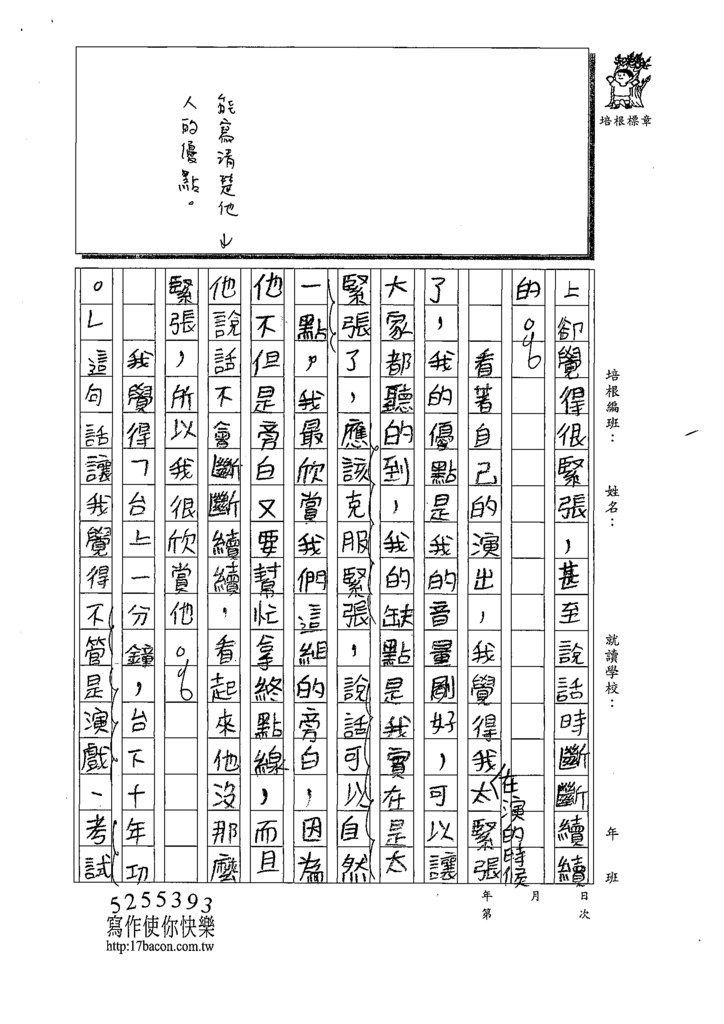 能寫清楚他↓
人的優點。
培根標章
培根編班：
姓名：
就讀學校：
年班
年 月 日
第 次
上卻覺得很緊張，甚至說話時斷斷續續
的。
看著自己的演出，我覺得我太緊張
在演的時候
了，我的優點是我的音量剛好，可以讓
大家都聽的到，我的缺點是我實在是太
緊張了，應該克服緊張，說話可以自然
一點，我最欣賞我們這組的旁白，因為
他不但是旁白又要幫忙拿終點線，而且
他說話不會斷斷續續，看起來他沒那麼
緊張，所以我很欣賞他。
我覺得「台上一分鐘，台下十年功
。」這句話讓我覺得不管是演戲、考試
5255393
寫作使你快樂
http:17bacon.com.tw